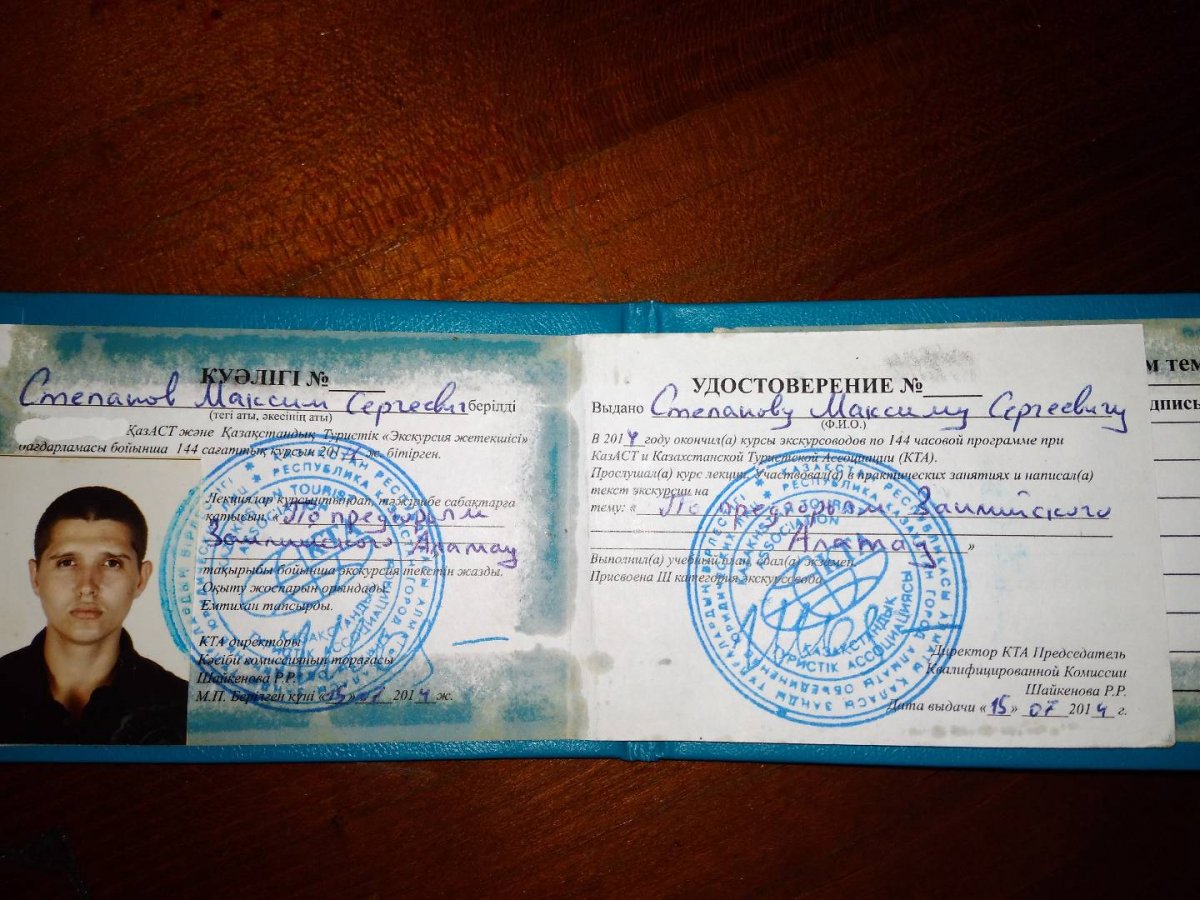 КУӘЛІГІ №
Степанов Максим Сергеевич берілді
(тегі аты, әкесінің аты)
ҚазАСТ және Қазақстандық Туристік «Экскурсия жетекшісі»
бағдарламасы бойынша 144 сағаттық курсын 2014 ж. бітірген.
Лекциялар курсын тыңдап, тәжірибе сабақтарға
қатысып, « По предгорьям
Заилийского Алатау
тақырыбы бойынша экскурсия текстін жазды.
Оқыту жоспарын орындады.
Емтихан тапсырды.
КТА директоры
Кәсіби комиссияның торағасы
Шайкенова Р.Р.
М.П. Берілген күні «15» 07 2014 ж.
УДОСТОВЕРЕНИЕ №
Выдано Степанову Максиму Сергеевичу
(Ф.И.О.)
В 2014 году окончил(а) курсы экскурсоводов по 144 часовой программе при
КазАСТ и Казахстанской Туристской Ассоциации (КТА).
Прослушал(а) курс лекций. Участвовал(а) в практических занятиях и написал(а)
текст экскурсии на
тему: « По предгорьям Заилийского
Алатау »
Выполнил(а) учебный план, сдал(а) экзамен.
Присвоена III категория экскурсовода
Директор КТА Председатель
Квалифицированной Комиссии
Шайкенова Р.Р.
Дата выдачи «15» 07 2014 г.
KAZAKHSTAN TOURIST
ASSOCIATION
КТА
ҚАЗАҚСТАНДЫҚ
ТУРИСТІК АССОЦИАЦИЯСЫ